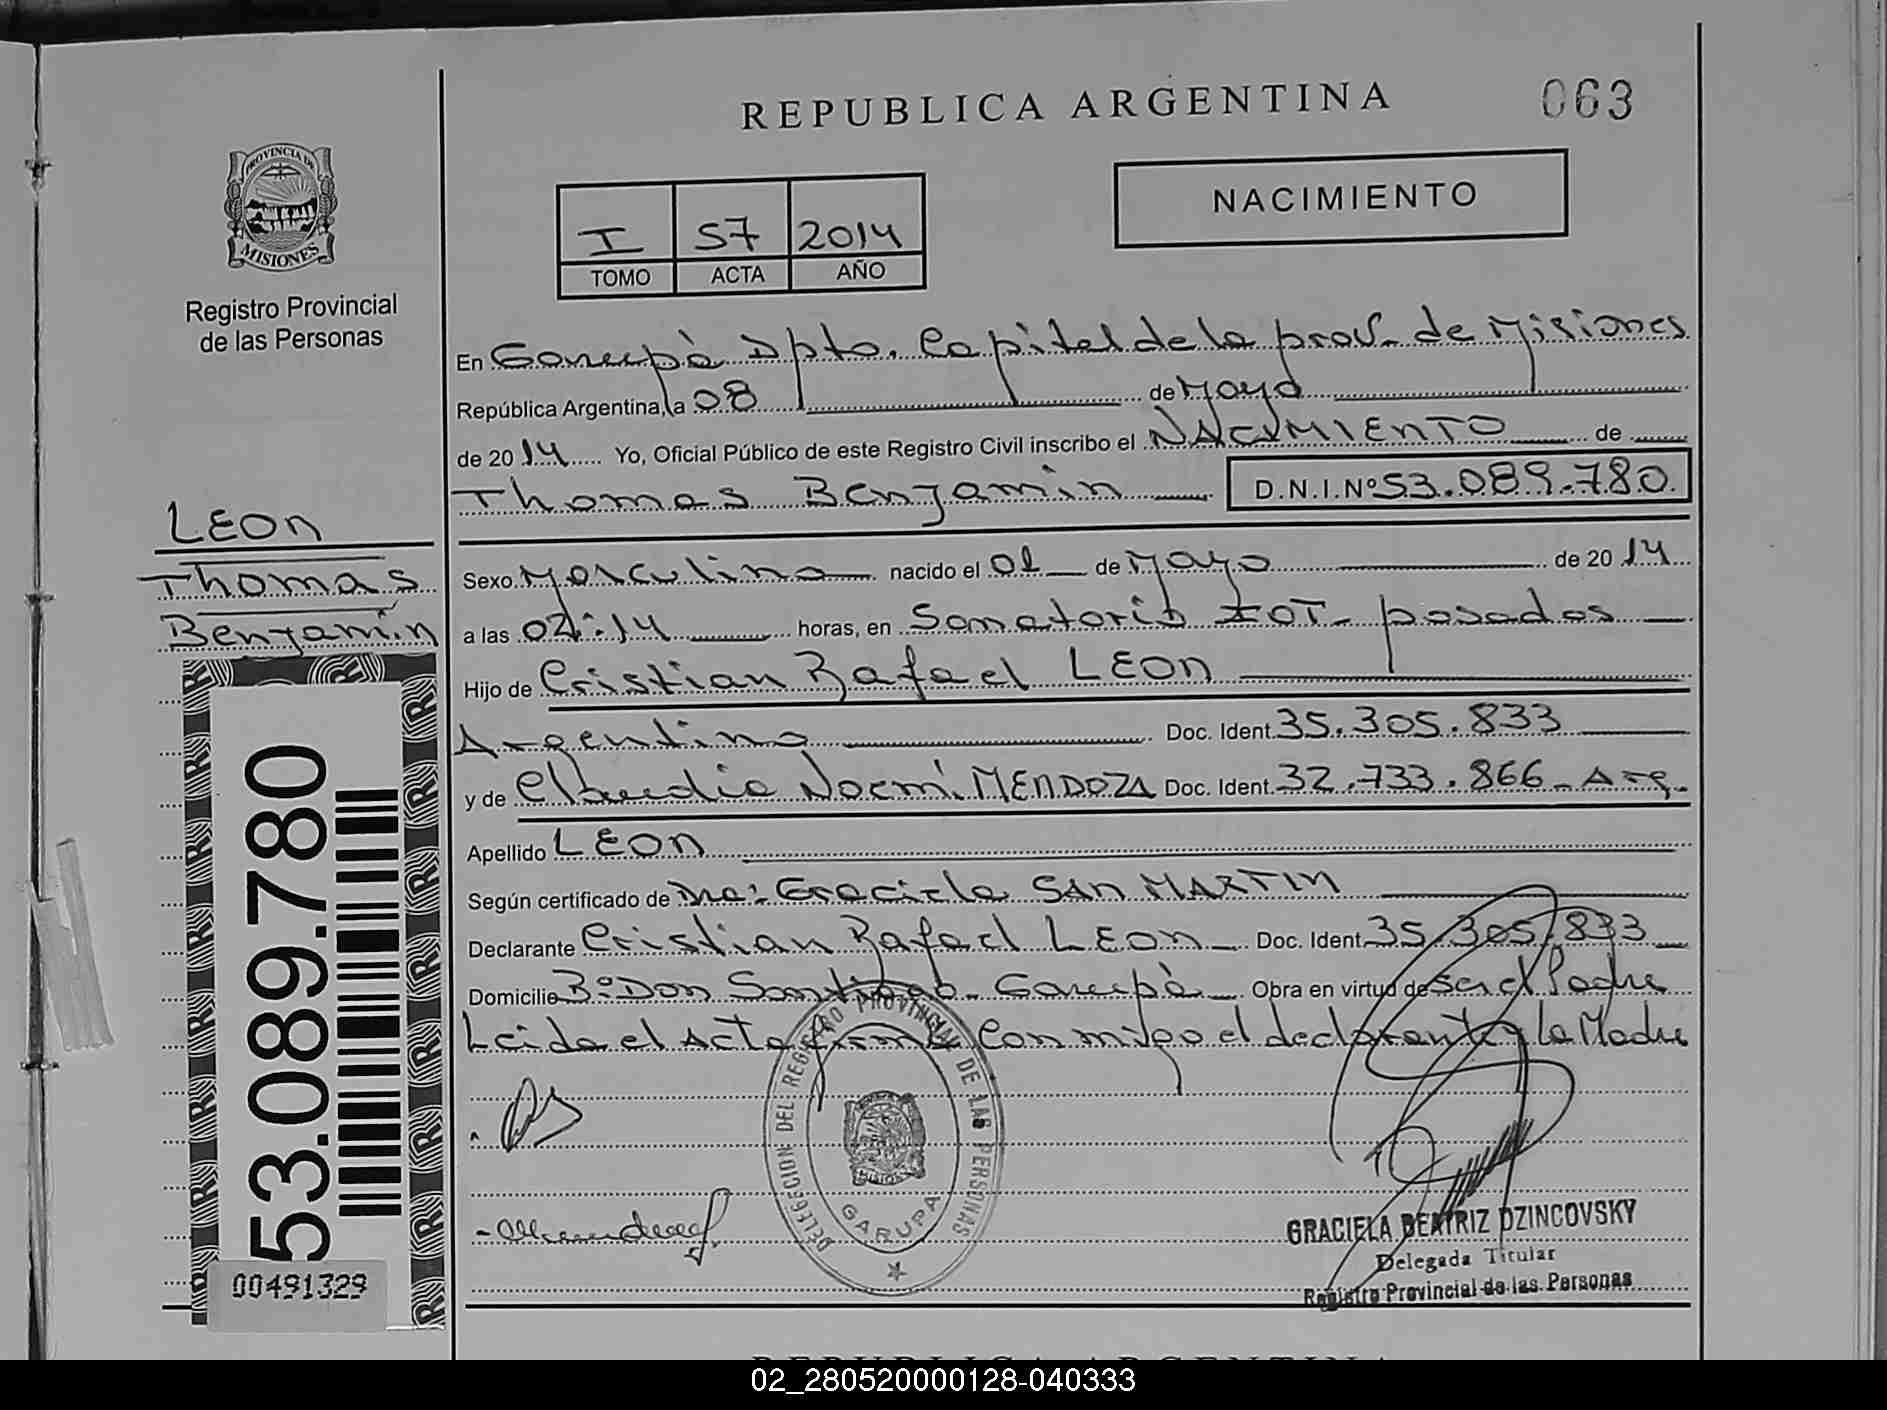 REPUBLICA ARGENTINA
063
PROVINCIA DE
MISIONES
Registro Provincial
de las Personas
NACIMIENTO
I 57 2014
TOMO ACTA AÑO
En Garupà Dpto. Capital de la prov. de Misiones
República Argentina, a 08 de Mayo
de 2014 Yo, Oficial Público de este Registro Civil inscribo el NACIMIENTO de
Thomas Benjamin D.N.I.Nº 53.089.780
LEON
Thomas
Benjamin
Sexo Masculino nacido el 01 de Mayo de 2014
a las 02:14 horas, en Sanatorio IOT - posadas
Hijo de Cristian Rafael LEON
Argentino Doc. Ident. 35.305.833
y de Claudia Noemí MENDOZA Doc. Ident. 32.733.866 - Arg.
Apellido LEON
Según certificado de Dra: Graciela SAN MARTIN
Declarante Cristian Rafael LEON Doc. Ident. 35.305.833
Domicilio Bº DON Santiago - Garupà Obra en virtud de ser el Padre
Leida el Acta firma conmigo el declarante y la Madre
53.089.780
00491329
DELEGACION DEL REGISTRO PROVINCIAL DE LAS PERSONAS
MISIONES
GARUPA
GRACIELA BEATRIZ DZINCOVSKY
Delegada Titular
Registro Provincial de las Personas
REPUBLICA ARGENTINA
02_280520000128-040333